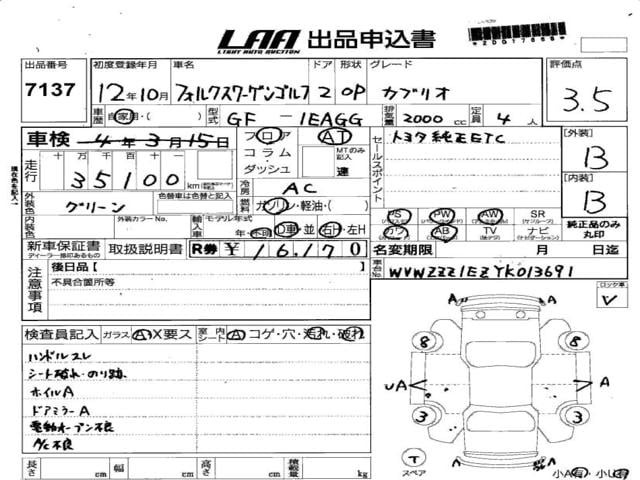 LAA 出品申込書
LIGHT AUTO AUCTION
出品番号 初度登録年月 車名 ドア 形状 グレード 評価点
7137 12年10月 フォルクスワーゲンゴルフ 2 OP カブリオ 3.5
車歴 自家用・( ) 型式 GF - 1EAGG 排気量 2000 cc 定員 4 人
車検 4年3月15日 フロア AT セールスポイント トヨタ純正ETC [外装]
走行 十 万 千 百 十 コラム MTのみ記入 B
35100 km ダッシュ 速
冷房 AC [内装]
外装色 グリーン 色替車は色替と記入 燃料 ガソリン・軽油・( ) B
内装色 外装カラーNo. 輸入車 モデル年式 年・不明 D車・並 右H・左H
PS PW AW SR
カワ AB TV ナビ 純正品のみ丸印
新車保証書 取扱説明書 R券 ¥16,170 名変期限 月 日迄
ディーラー捺印あるもの
注意事項 後日品[ ] 車台No. WVWZZZ1EZYK013691
不具合箇所等 ロック車
レ
検査員記入 ガラス A X要ス 室内シート A コゲ・穴・汚れ・破れ
ハンドルスレ
シート破れ・のり跡
ホイルA
ドアミラーA
電動オープン不良
A/C不良
A A
8 8
UA A
3 3
A
T
スペア
長さ cm 幅 cm 高さ cm 積載量 kg 小A(有) 小U(有)